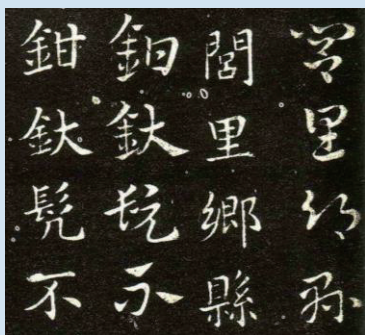 閭里鄉縣
閭里鄉縣
鉗釱髡不
鉗釱髡不